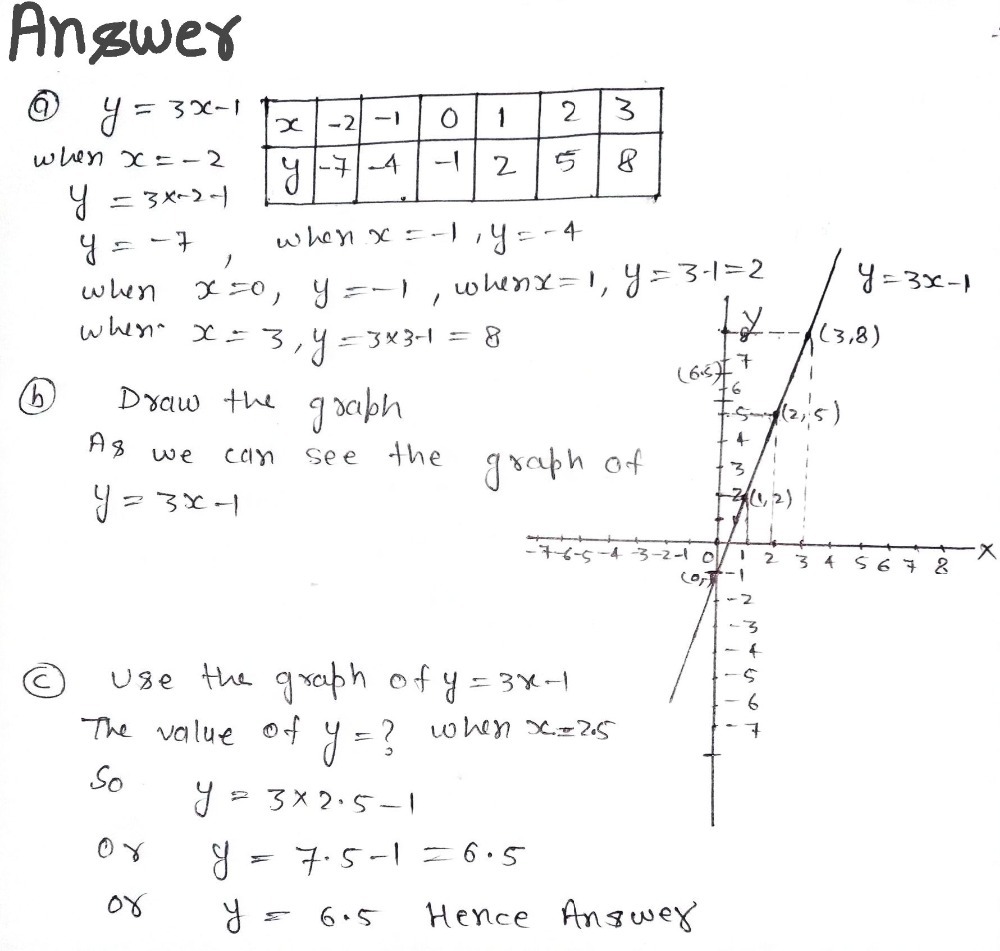 Answer
(a) y = 3x-1
x -2 -1 0 1 2 3
y -7 -4 -1 2 5 8
when x = -2
y = 3x-2-1
y = -7, when x = -1, y = -4
when x=0, y = -1, when x=1, y = 3-1=2
when x = 3, y = 3x3-1 = 8
(b) Draw the graph
As we can see the graph of
y = 3x-1
y = 3x-1
y
8 (3,8)
7
(6.5)
6
5 (2,5)
4
3
2 (1,2)
1
-7 -6 -5 -4 -3 -2 -1 0 1 2 3 4 5 6 7 8 X
-1
-2
-3
-4
-5
-6
-7
(c) Use the graph of y = 3x-1
The value of y = ? when x = 2.5
So y = 3x2.5-1
or y = 7.5-1 = 6.5
or y = 6.5 Hence Answer